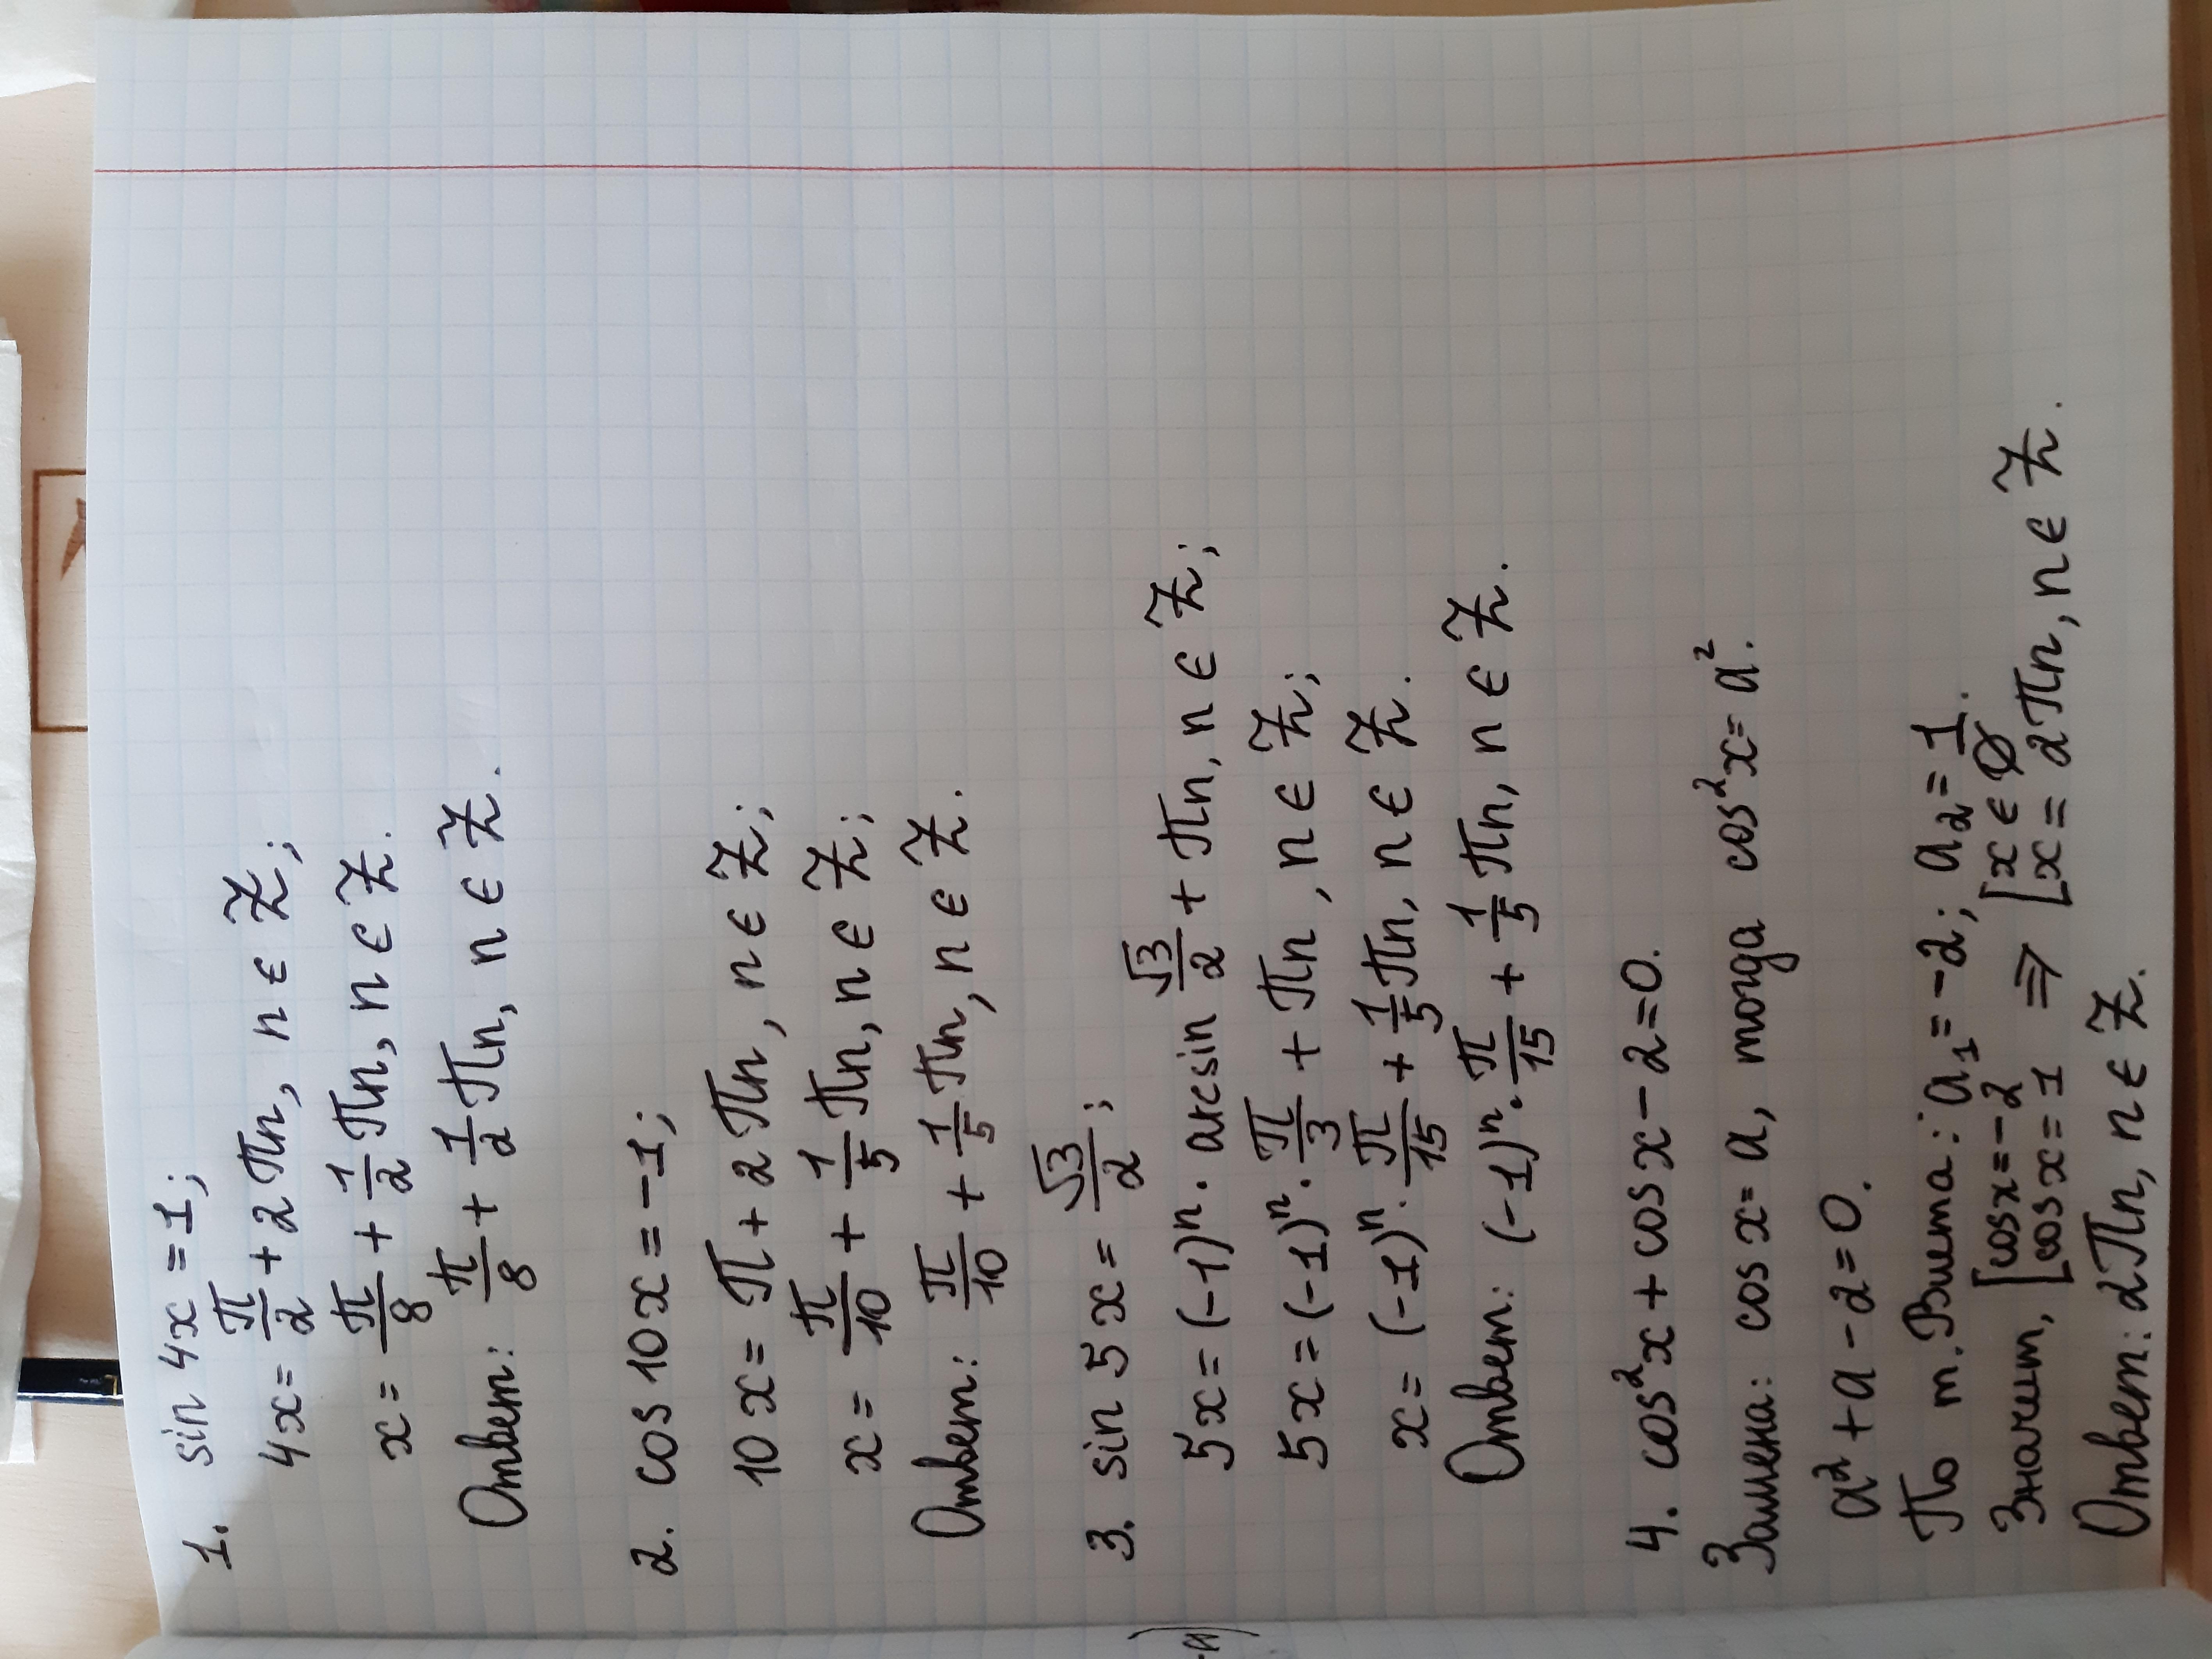 1. sin 4x = 1;
4x = π/2 + 2πn, n ∈ ℤ;
x = π/8 + 1/2 πn, n ∈ ℤ.
Ответ: π/8 + 1/2 πn, n ∈ ℤ.
2. cos 10x = -1;
10x = π + 2πn, n ∈ ℤ;
x = π/10 + 1/5 πn, n ∈ ℤ;
Ответ: π/10 + 1/5 πn, n ∈ ℤ.
3. sin 5x = √3/2;
5x = (-1)ⁿ · arcsin √3/2 + πn, n ∈ ℤ;
5x = (-1)ⁿ · π/3 + πn, n ∈ ℤ;
x = (-1)ⁿ · π/15 + 1/5 πn, n ∈ ℤ.
Ответ: (-1)ⁿ · π/15 + 1/5 πn, n ∈ ℤ.
4. cos²x + cos x - 2 = 0.
Замена: cos x = a, тогда cos²x = a².
a² + a - 2 = 0.
По т. Виета: a₁ = -2; a₂ = 1.
Значит, [cos x = -2 ⇒ [x ∈ ∅
[cos x = 1 [x = 2πn, n ∈ ℤ.
Ответ: 2πn, n ∈ ℤ.